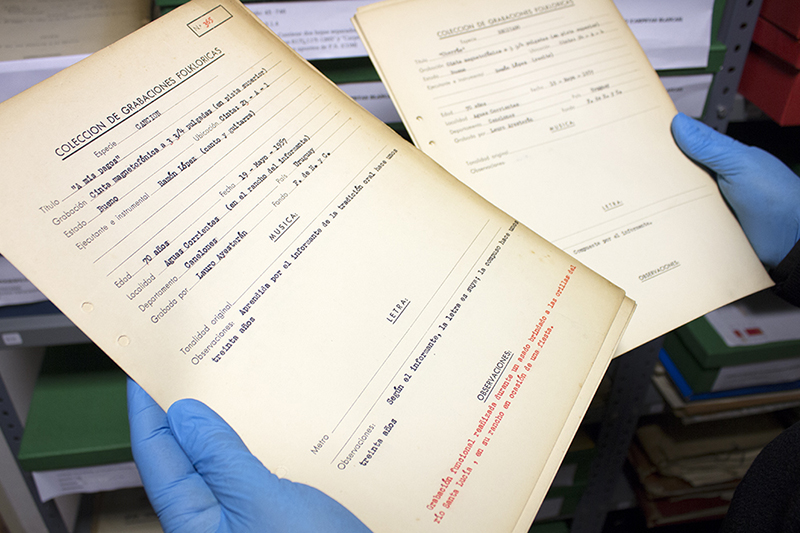 Nº 365
COLECCION DE GRABACIONES FOLKLORICAS
Especie CANCION
Título "A mis pagos"
Grabación Cinta magnetofónica a 3 3/4 pulgadas (en pista superior)
Estado Bueno Ubicación Cintas 23 - A - 1
Ejecutante e instrumental Ramón López (canto y guitarra)
Edad 70 años Fecha 19 - Mayo - 1957
Localidad Aguas Corrientes (en el rancho del informante)
Departamento Canelones País Uruguay
Grabado por Lauro Ayestarán Fondo F. de H. y C.
MUSICA:
Tonalidad original
Observaciones: Aprendida por el informante de la tradición oral hace unos
treinta años
LETRA:
Metro
Observaciones: Según el informante, la letra es suya; la compuso hace unos
treinta años
OBSERVACIONES:
Grabación funcional realizada durante un asado brindado a las orillas del
río Santa Lucía y en su rancho en ocasión de una fiesta.
COLECCION DE GRABACIONES FOLKLORICAS
Especie
Título
Grabación Cinta magnetofónica a 3 3/4 pulgadas (en pista superior)
Estado Bueno Ubicación Cintas
Ejecutante e instrumental Ramón López
Edad 70 años Fecha
Localidad Aguas Corrientes
Departamento Canelones País Uruguay
Grabado por Lauro Ayestarán Fondo F. de H. y C.
MUSICA:
Tonalidad original
Observaciones:
LETRA:
Compuesta por el informante.
OBSERVACIONES: